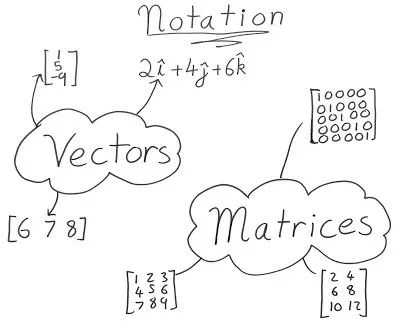 Notation
[1
5
-9]
2î+4ĵ+6k̂
Vectors
[6 7 8]
[1 0 0 0 0
0 1 0 0 0
0 0 1 0 0
0 0 0 1 0
0 0 0 0 1]
Matrices
[1 2 3
4 5 6
7 8 9]
[2 4
6 8
10 12]